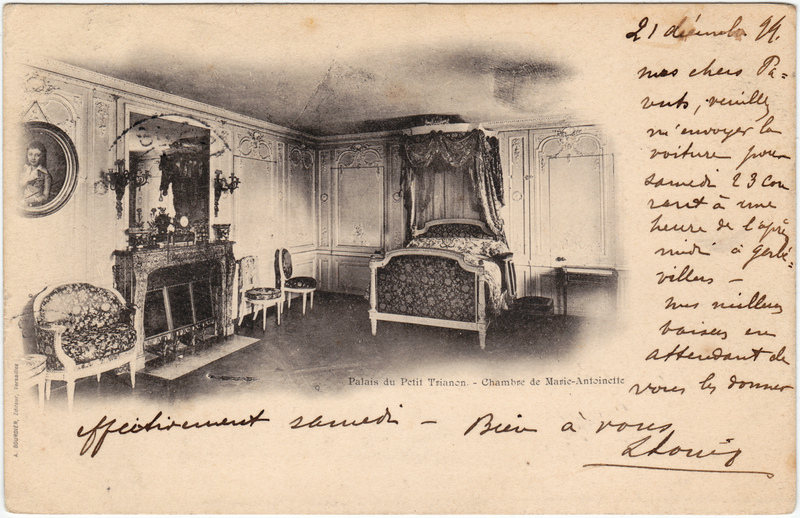 21 décembre 99.
mes chers Pa-
rents, veuillez
m'envoyer la
voiture pour
samedi 23 cou
rant à une
heure de l'après
midi à gerbé-
villers –
mes meilleurs
baisers en
attendant de
vous les donner
effectivement samedi – Bien à vous
Palais du Petit Trianon. - Chambre de Marie-Antoinette
A. BOURDIER, Éditeur, Versailles